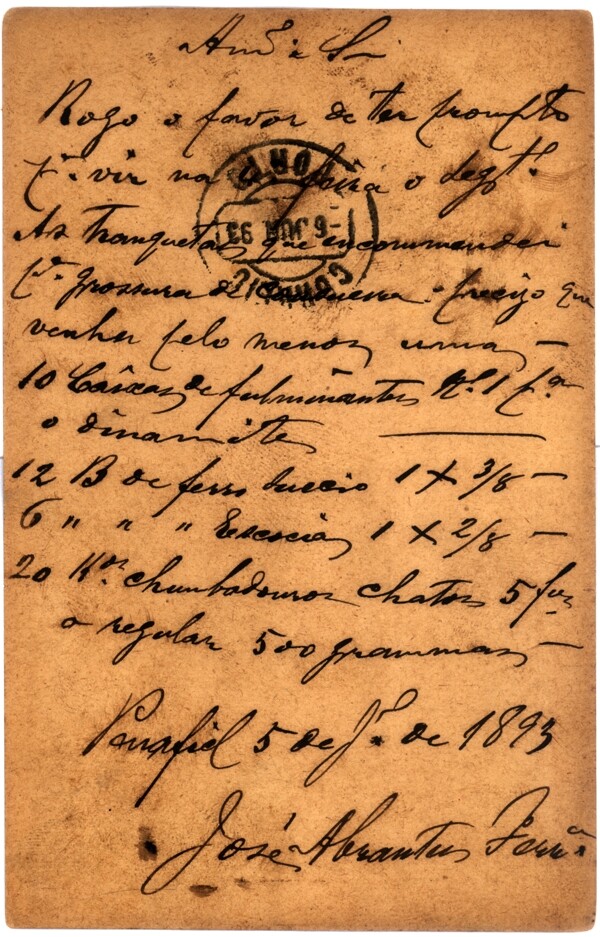 Am.º e Sr.
Rogo o favor de ter prompto
p.ª vir na feira o seg.te
As tranquetas que encommendei
p.ª grossura de precizo que
venha pelo menos uma —
10 Caixas de fulminantes N.º 1 p.ª
o dinamite
12 B de ferro suecio 1 X 3/8 —
6 " " " Escocia 1 X 2/8 —
20 K.os chumbadouros chatos 5 fur
o regular 500 grammas —
Penafiel 5 de J.º de 1893
José Abrantes Ferr.ª
PORTO
6 JUN 93